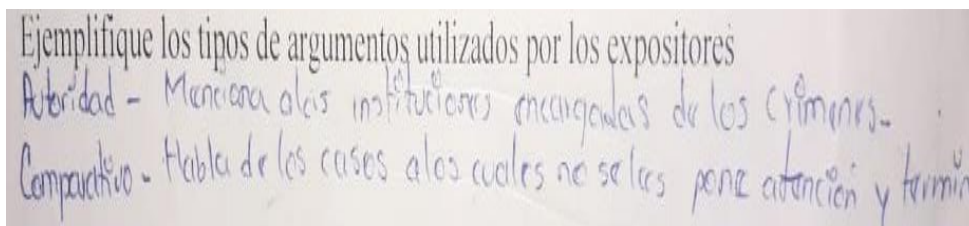 Ejemplifique los tipos de argumentos utilizados por los expositores
Autoridad - Menciona a las instituciones encargadas de los crímenes.
Comparativo - Habla de los casos a los cuales no se les pone atención y termin